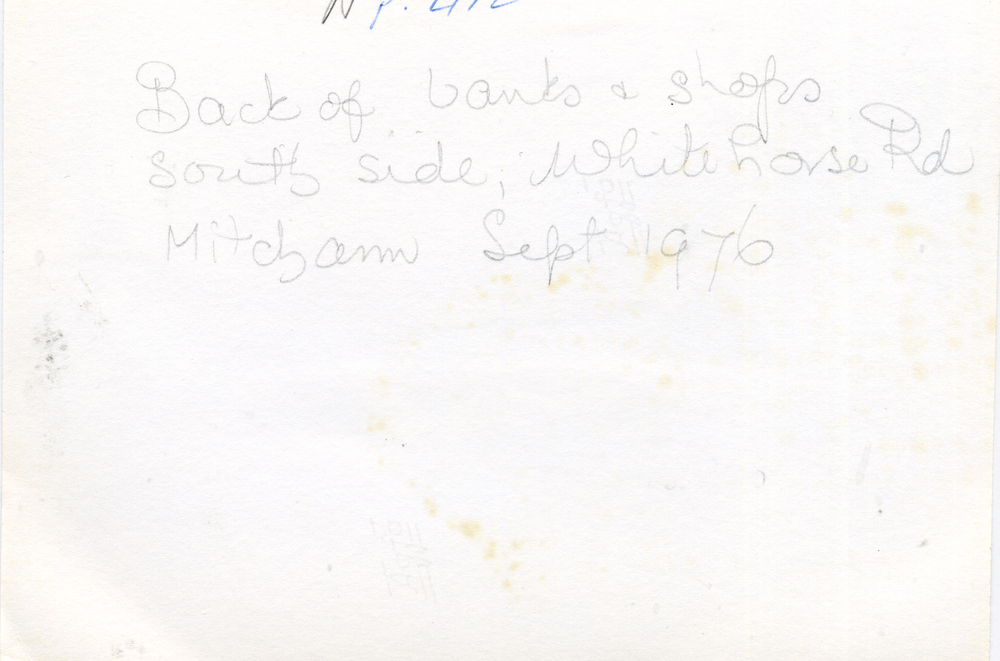 Back of banks & shops
south side, Whitehorse Rd
Mitcham Sept 1976